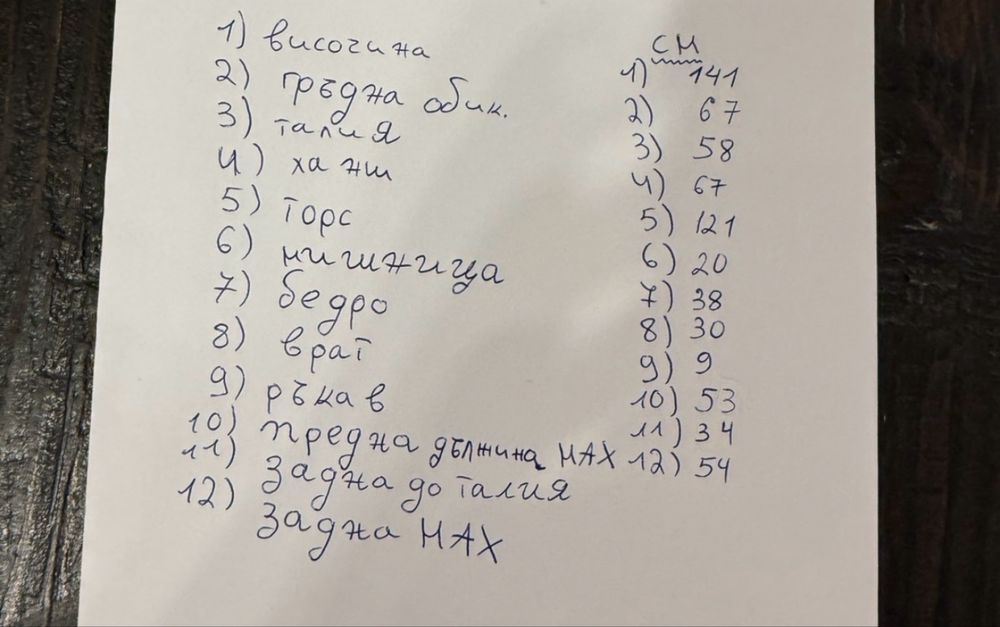 1) височина
2) гръдна обик.
3) талия
4) ханш
5) торс
6) мишница
7) бедро
8) врат
9) ръкав
10) предна дължина MAX
11) задна до талия
12) задна MAX
см
1) 141
2) 67
3) 58
4) 67
5) 121
6) 20
7) 38
8) 30
9) 9
10) 53
11) 34
12) 54